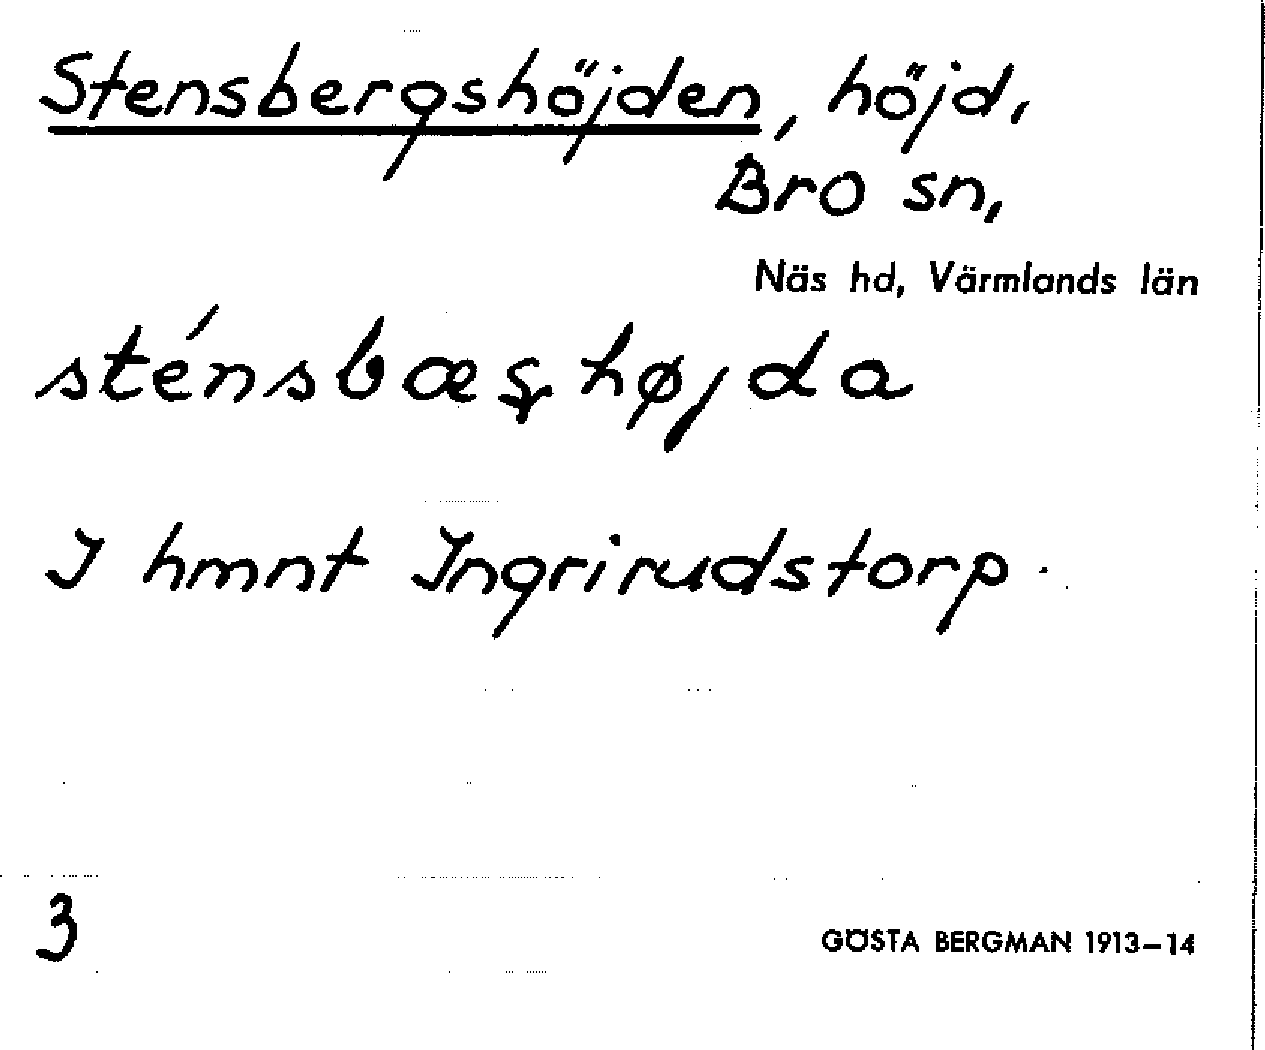 Stensbergshöjden, höjd,
Bro sn,
Näs hd, Värmlands län
sténsbæʂhøjda
I hmnt Ingrirudstorp.
3
GÖSTA BERGMAN 1913–14